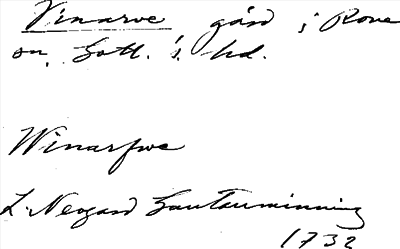 Vinarve gård i Rone
sn, Gotl. s. hd.
Winarfwe
L. Neogard Gautauminning
1732